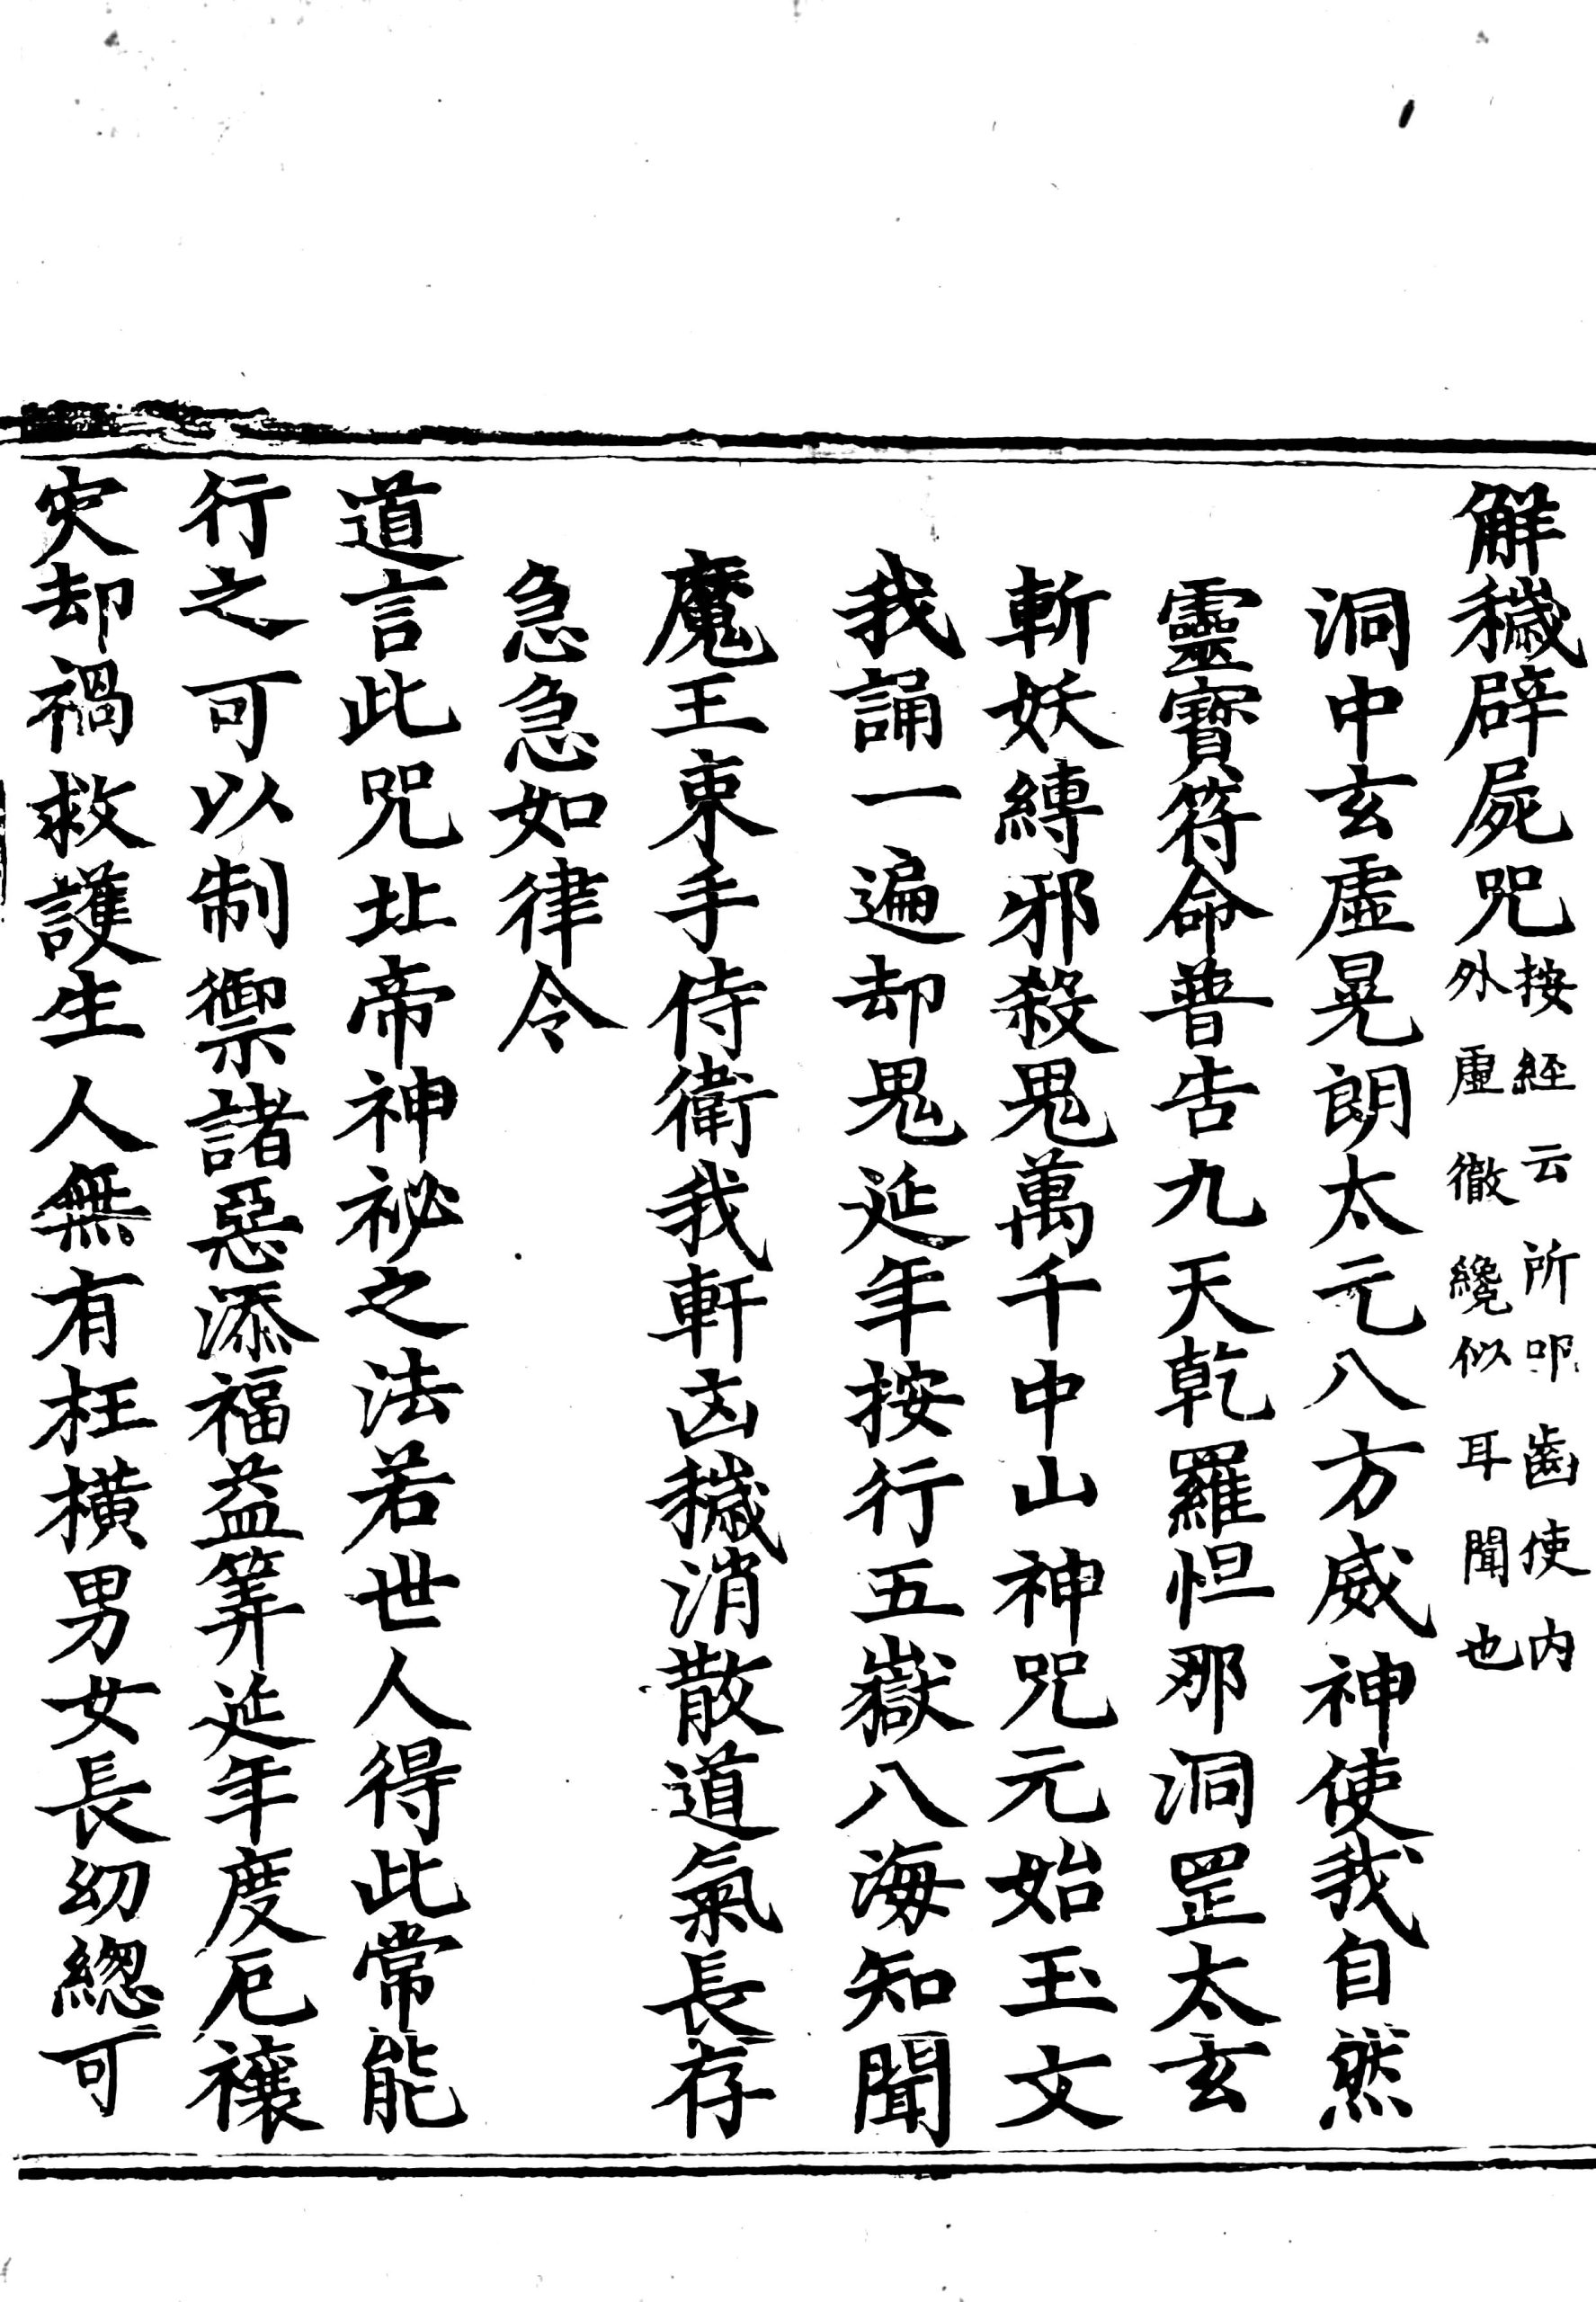 解穢辟屍咒按經云所叩齒使內外虛徹纔似耳聞也
洞中玄虛晃朗太元八方威神使我自然
靈寶符命普告九天乾羅怛那洞罡太玄
斬妖縛邪殺鬼萬千中山神咒元始玉文
我誦一遍却鬼延年按行五嶽八海知聞
魔王束手侍衛我軒凶穢消散道氣長存
急急如律令
道言此咒北帝神祕之法若世人得此常能
行之可以制禦諸惡添福益筭延年度厄禳
灾却禍救護生人無有枉橫男女長幼緫可